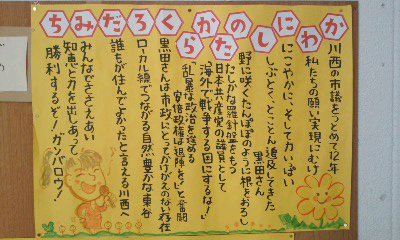 かわにしのたからくろだみち
川西の市議をつとめて12年
私たちの願い実現にむけ
にこやかに、そして力いっぱい
しぶとく、とことん追及してきた
黒田さん
野に咲くたんぽぽのように根をおろし
たしかな羅針盤をもつ
日本共産党の議員として
「海外で戦争する国にするな!」
乱暴な政治を進める
安倍政権は退陣を!と奮闘
黒田さんは市政にとってかけがえのない存在
ローカル線でつながる自然豊かな東谷
誰もが住んでよかったと言える川西へ
みんなでささえあい
知恵と力を出しあって
勝利するぞ!ガンバロウ!